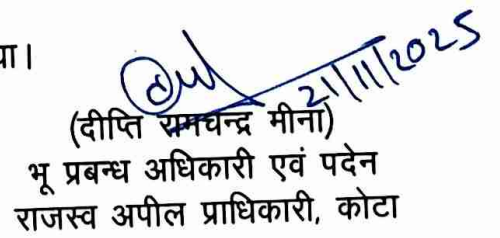 या।
21/11/2025
(दीप्ति रामचन्द्र मीना)
भू प्रबन्ध अधिकारी एवं पदेन
राजस्व अपील प्राधिकारी, कोटा